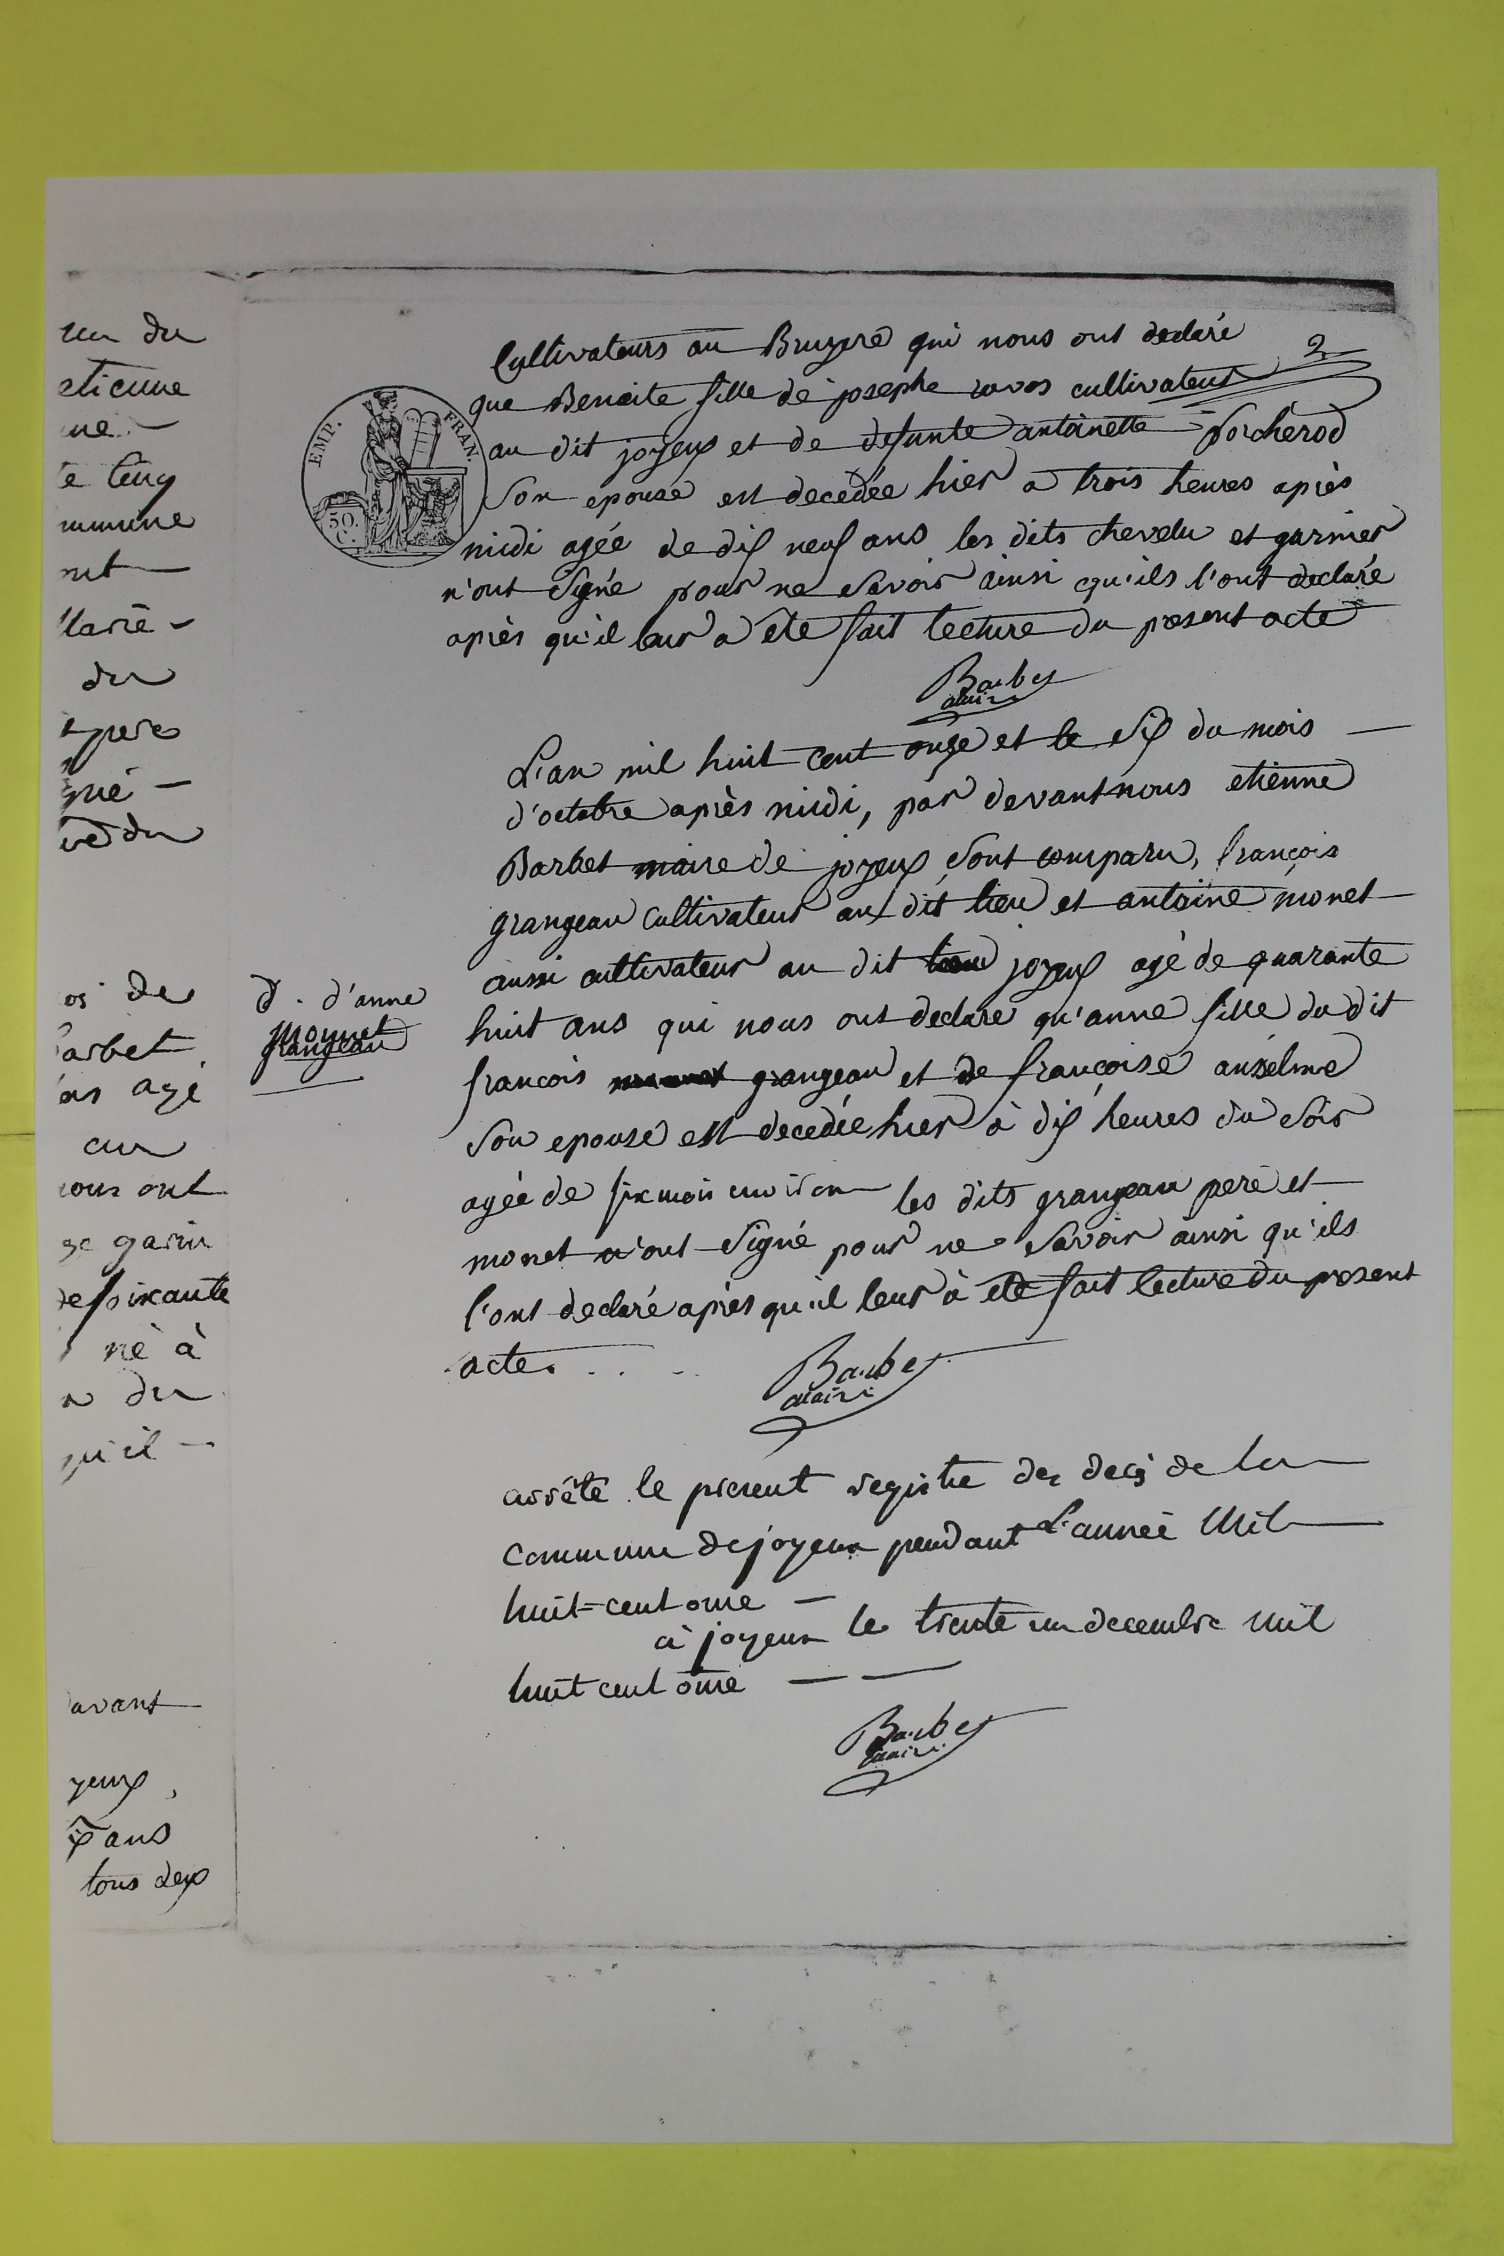 un du
etienne
une -
te Cinq
mmune
nt
Marie -
du
pere
gné -
ure du
os de
Barbet
ans agé
au
nous ont
ge garin
de soixante
né à
n du
qu'il -
avant
yeux,
ix ans
tous deux
2
EMP. FRAN.
50. C.
Cultivateurs au Bruyere qui nous ont declaré
que Benoite fille de josephe ravos cultivateur
au dit joyeux et de defunte antoinette porcherod
Son epouse est decedée hier a trois heures après
midi agée de dix neuf ans les dits chevelu et garnier
n'ont signé pour ne savoir ainsi qu'ils l'ont declaré
après qu'il leur a été fait lecture du present acte
Barbet
maire
L'an mil huit cent onze et le six du mois
d'octobre après midi, par devant nous etienne
Barbet maire de joyeux sont comparu, françois
grangeau cultivateur au dit lieu et antoine monet
aussi cultivateur au dit lieu joyeux agé de quarante
huit ans qui nous ont declaré qu'anne fille du dit
françois grangeau et de françoise anselme
Son epouse est decedée hier à dix heures du soir
agée de six mois environ les dits grangeau pere et
monet n'ont signé pour ne savoir ainsi qu'ils
l'ont declaré après qu'il leur à été fait lecture du present
acte. . . .
Barbet
maire
D. d'anne
monnet
grangeau
arrêté le present registre des decès de la
commune de joyeux pendant L'année Mil
huit-cent onze -
à joyeux le trente un decembre mil
huit cent onze - -
Barbet
maire